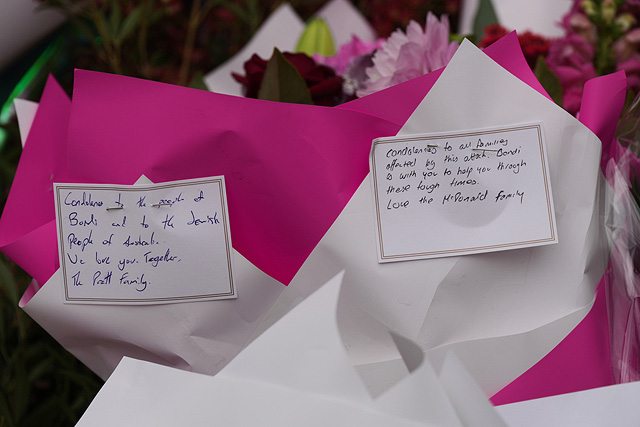 Condolences to the people of
Bondi and to the Jewish
People of Australia.
We love you. Together.
The Pratt Family.
Condolences to all families
affected by this attack. Bondi
is with you to help you through
these tough times.
Love the McDonald family